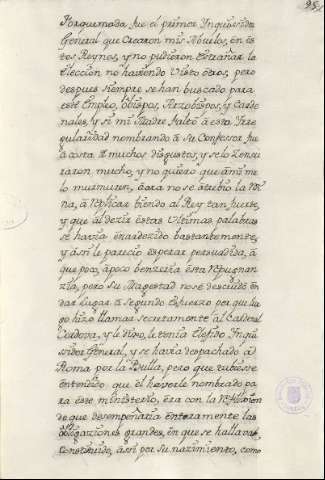 95
Torquemada fue el primer Ynquisidor
General que Crearon mis Abuelos, en es
tos Reynos, y no pudieron Extrañar la
Eleccion no haviendo Visto otros, pero
despues siempre se han buscado para
este Empleo, Obispos, Arzobispos, y Carde
nales, y si mi Madre faltó á esta Irre
gularidad nombrando á su Confessor fue
á costa de muchos disgustos, y se lo Zensu
raron mucho, y no quiero que á mi me
lo murmuren, ósara no se atrebio la Rey
na, á Replicar biendo al Rey tan fuerte,
y que al dezir éstas Ultimas palabras
se havia enardezido bastantemente,
y ási le parecio esperar persuadida, á
que poco, á poco benzeria ésta Repugnan
zia, pero Su Magestad no se descuidó en
dar lugar á segundo Esfuerzo por que lue
go hizo llamar secretamente al Cardenal
Cordova, y le dixo, le tenia Elegido Inqui
sidor General, y se havia despachado á
Roma por la Bulla, pero que tubiesse
entendido que el haverle nombrado pa
ra éste ministerio, éra con la
de que desempeñaria enteramente las
obligaciones grandes, en que se hallava
Constituido, ási por su nazimiento, como